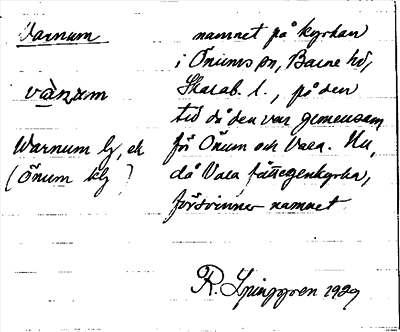 Varnum
namnet på kyrkan
i Önums sn, Barne hd,
Skarab. l., på den
tid då den var gemensam
för Önum och Vara. Nu,
då Vara fått egen kyrka,
försvinner namnet.
vànɷm
Warnum kg, ek
(Önum kg)
R. Ljunggren 1929